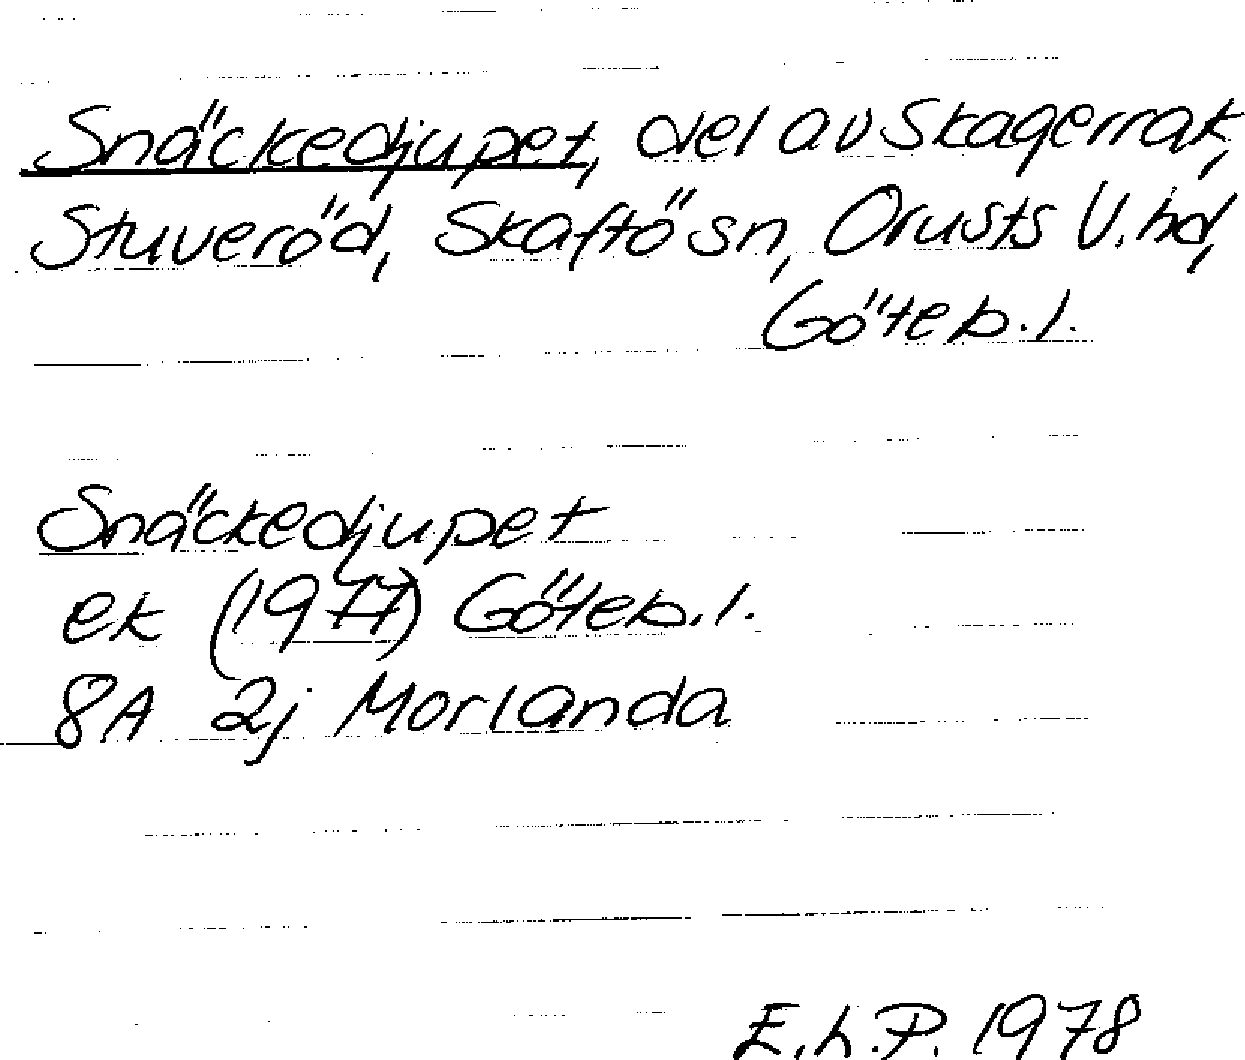 Snäckedjupet, del av Skagerrak,
Stuveröd, Skaftö sn, Orusts V. hd,
Göteb. l.
Snäckedjupet
ek (1977) Göteb. l.
8A 2j Morlanda
E. L. P. 1978